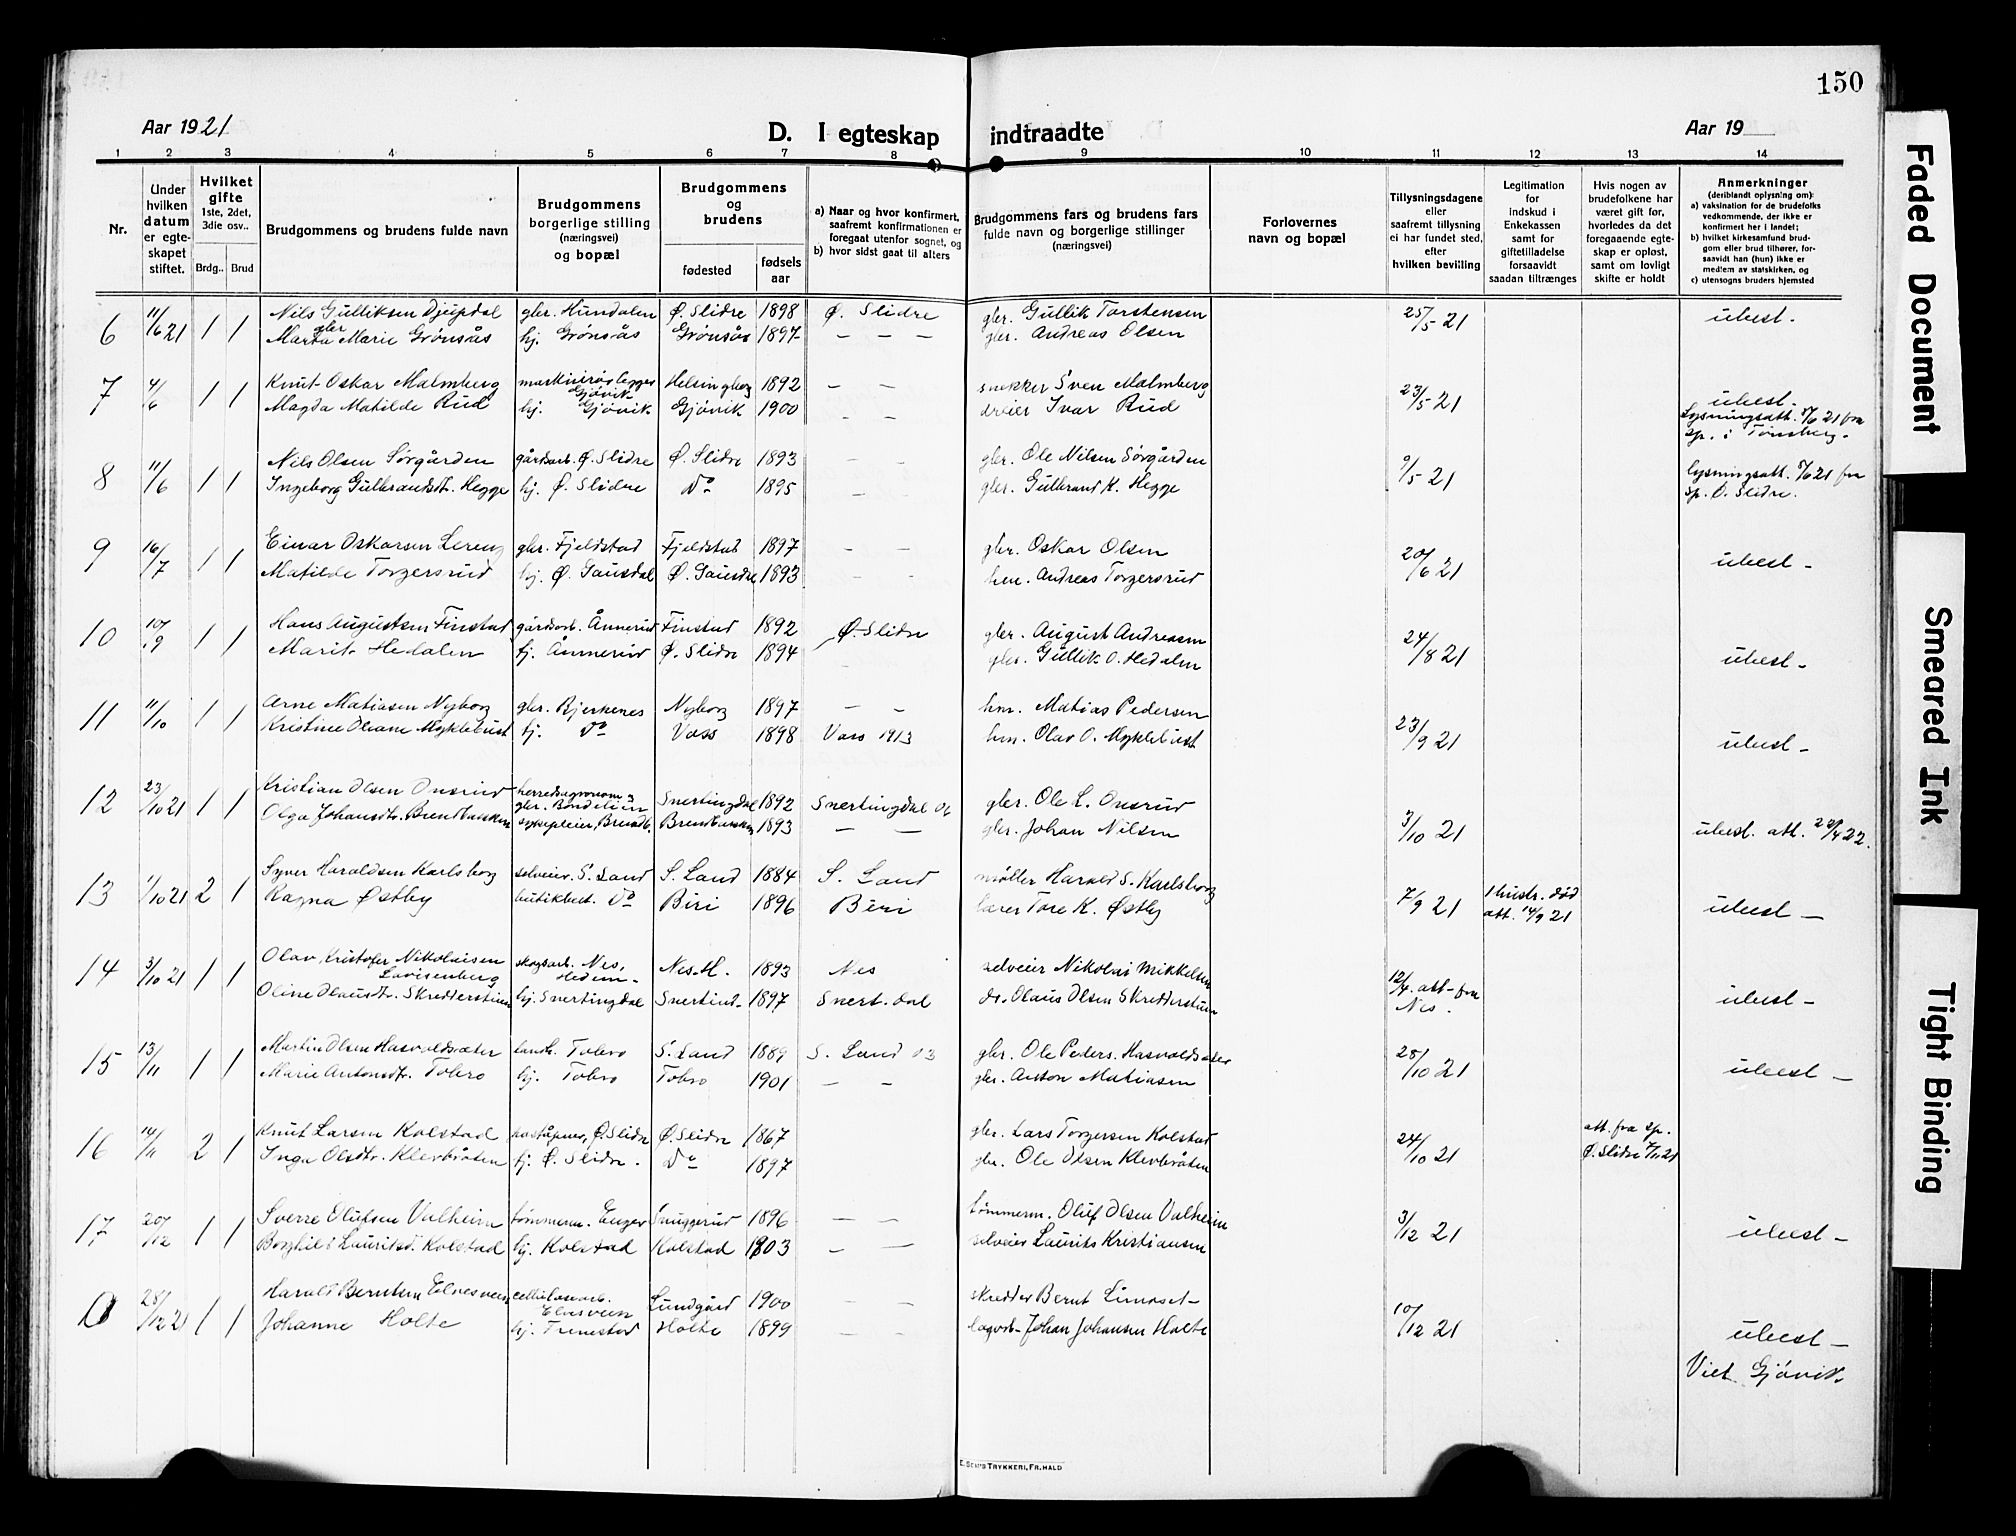 150
Aar 1921
D. I egteskap indtraadte
Aar 19
1 2 3 4 5 6 7 8 9 10 11 12 13 14
Nr.
Under hvilken datum er egteskapet stiftet.
Hvilket gifte 1ste, 2det, 3die osv..
Brdg.. Brud
Brudgommens og brudens fulde navn
Brudgommens borgerlige stilling (næringsvei) og bopæl
Brudgommens og brudens
fødested
fødsels aar
a) Naar og hvor konfirmert, saafremt konfirmationen er foregaat utenfor sognet, og
b) hvor sidst gaat til alters
Brudgommens fars og brudens fars fulde navn og borgerlige stillinger (næringsvei)
Forlovernes navn og bopæl
Tillysningsdagene eller saafremt tillysning ei har fundet sted, efter hvilken bevilling
Legitimation for indskud i Enkekassen samt for giftetilladelse forsaavidt saadan tiltrænges
Hvis nogen av brudefolkene har været gift før, hvorledes da det foregaaende egteskap er opløst, samt om lovligt skifte er holdt
Anmerkninger (deriblandt oplysning om):
a) vaksination for de brudefolks vedkommende, der ikke er konfirmert her i landet;
b) hvilket kirkesamfund brudgom eller brud tilhører, forsaavidt han (hun) ikke er medlem av statskirken, og
c) utensogns bruders hjemsted
6 11/6 21 1 1 Nils Gulliksen Djupdal gbr. Hundalen Ø. Slidre 1898 Ø. Slidre gbr. Gullik Torstensen 25/5 21 ubest.
Marta Marie Grønsås hj. Grønsås Grønsås 1897 — — — gbr. Andreas Olsen
7 4/6 1 1 Knut Oskar Malmberg Gjøvik Helsingborg 1892 — — snekker Sven Malmberg 23/5 21 ubest.
Magda Matilde Rud hj. Gjøvik Gjøvik 1900 — — dreier Ivar Rud
Lysningsatt. 21 fra sp. i Tønsberg.
8 11/6 1 1 Nils Olsen Sørgården gårdsarb. Ø. Slidre Ø. Slidre 1893 — — gbr. Ole Nilsen Sørgården 9/5 21 lysningsatt. 21 fra
Ingeborg Gulbrandsdt. Hegge hj. Ø. Slidre Do 1895 — — gbr. Gulbrand K. Hegge sp. Ø. Slidre.
9 16/7 1 1 Einar Oskarsen Lereng gbr. Fjeldstad Fjeldstad 1897 — — gbr. Oskar Olsen 20/6 21 ubest —
Matilde Torgersrud hj. Ø. Gausdal Ø. Gausdal 1893 — — hm. Andreas Torgersrud
10 10/9 1 1 Hans Augustsen Finstad gårdsarb. Ånnerud Finstad 1892 Ø. Slidre gbr. August Andreasen 24/8 21
Marit Hedalen tj. Ånnerud Ø. Slidre 1894 — — gbr. Gullik O. Hedalen ubest —
11 11/10 1 1 Arne Matiasen Nyborg gbr. Bjerkenes Nyborg 1897 — — hm. Matias Pedersen 23/9 21
Kristine Oliane Myklebust tj. Do Voss 1898 Voss 1913 hm. Olav O. Myklebust ubest —
12 23/10 21 1 1 Kristian Olsen Onsrud herredsagronom, gbr. Bondelien Snertingdal 1892 Snertingdal 06 gbr. Ole L. Onsrud
Olga Johansdt. Brendbakken sykepleier, Brendb. Brendbakken 1893 — — gbr. Johan Nilsen 3/10 21 ubest. att. 22.
13 1/10 21 2 1 Syver Haraldsen Karlsborg selveier. S. Land S. Land 1884 S. Land møller Harald S. Karlsborg 7/9 21 1 hustr. død
Ragna Østby butikbest. Do Biri 1896 Biri lærer Tore K. Østby att. 14/9 21 ubest —
14 3/10 21 1 1 Olav Kristofer Nikolaisen Lavisenberg skogsarb. Nes, Hedm. Nes. H. 1893 Nes selveier Nikolai Mikkelsen 12/4. att. fra Nes.
Oline Olausdt. Skredderstuen hj. Snertingdal Snertind. 1897 Snert. dal do. Olaus Olsen Skredderstuen ubest —
15 13/11 1 1 Martin Olsen Hasvoldsæter landb. Tobro S. Land 1889 S. Land 03 gbr. Ole Peders. Hasvoldsæter 28/10 21
Marie Antonsdt. Tobro hj. Tobro Tobro 1901 — — gbr. Anton Matiasen ubest —
16 14/11 2 1 Knut Larsen Kolstad poståpner, Ø. Slidre Ø. Slidre 1867 gbr. Lars Torgersen Kolstad 24/10 21 att. fra sp.
Inga Olsdt. Klevbråten tj. Ø. Slidre. Do 1897 gbr. Ole Olsen Klevbråten Ø. Slidre 7/11 21
17 20/12 1 1 Sverre Olufsen Valheim tømmerm. Enger Snuggerud 1896 — — tømmerm. Oluf Olsen Valheim 3/12 21
Borghild Lauritsd. Kolstad hj. Kolstad Kolstad 1903 — — selveier Laurits Kristiansen ubest —
28/12 21 1 1 Harald Berntsen Elvesveen cellulosearb. Elvesveen Lundgård 1900 — — skredder Bernt Limoset 10/12 21
Johanne Holte hj. Tunestad Holte 1899 — — Johan Johansen Holte ubest —
Viet Gjøvik
E. Sem's Trykkeri, Fr.hald
Faded Document
Smeared Ink
Tight Binding